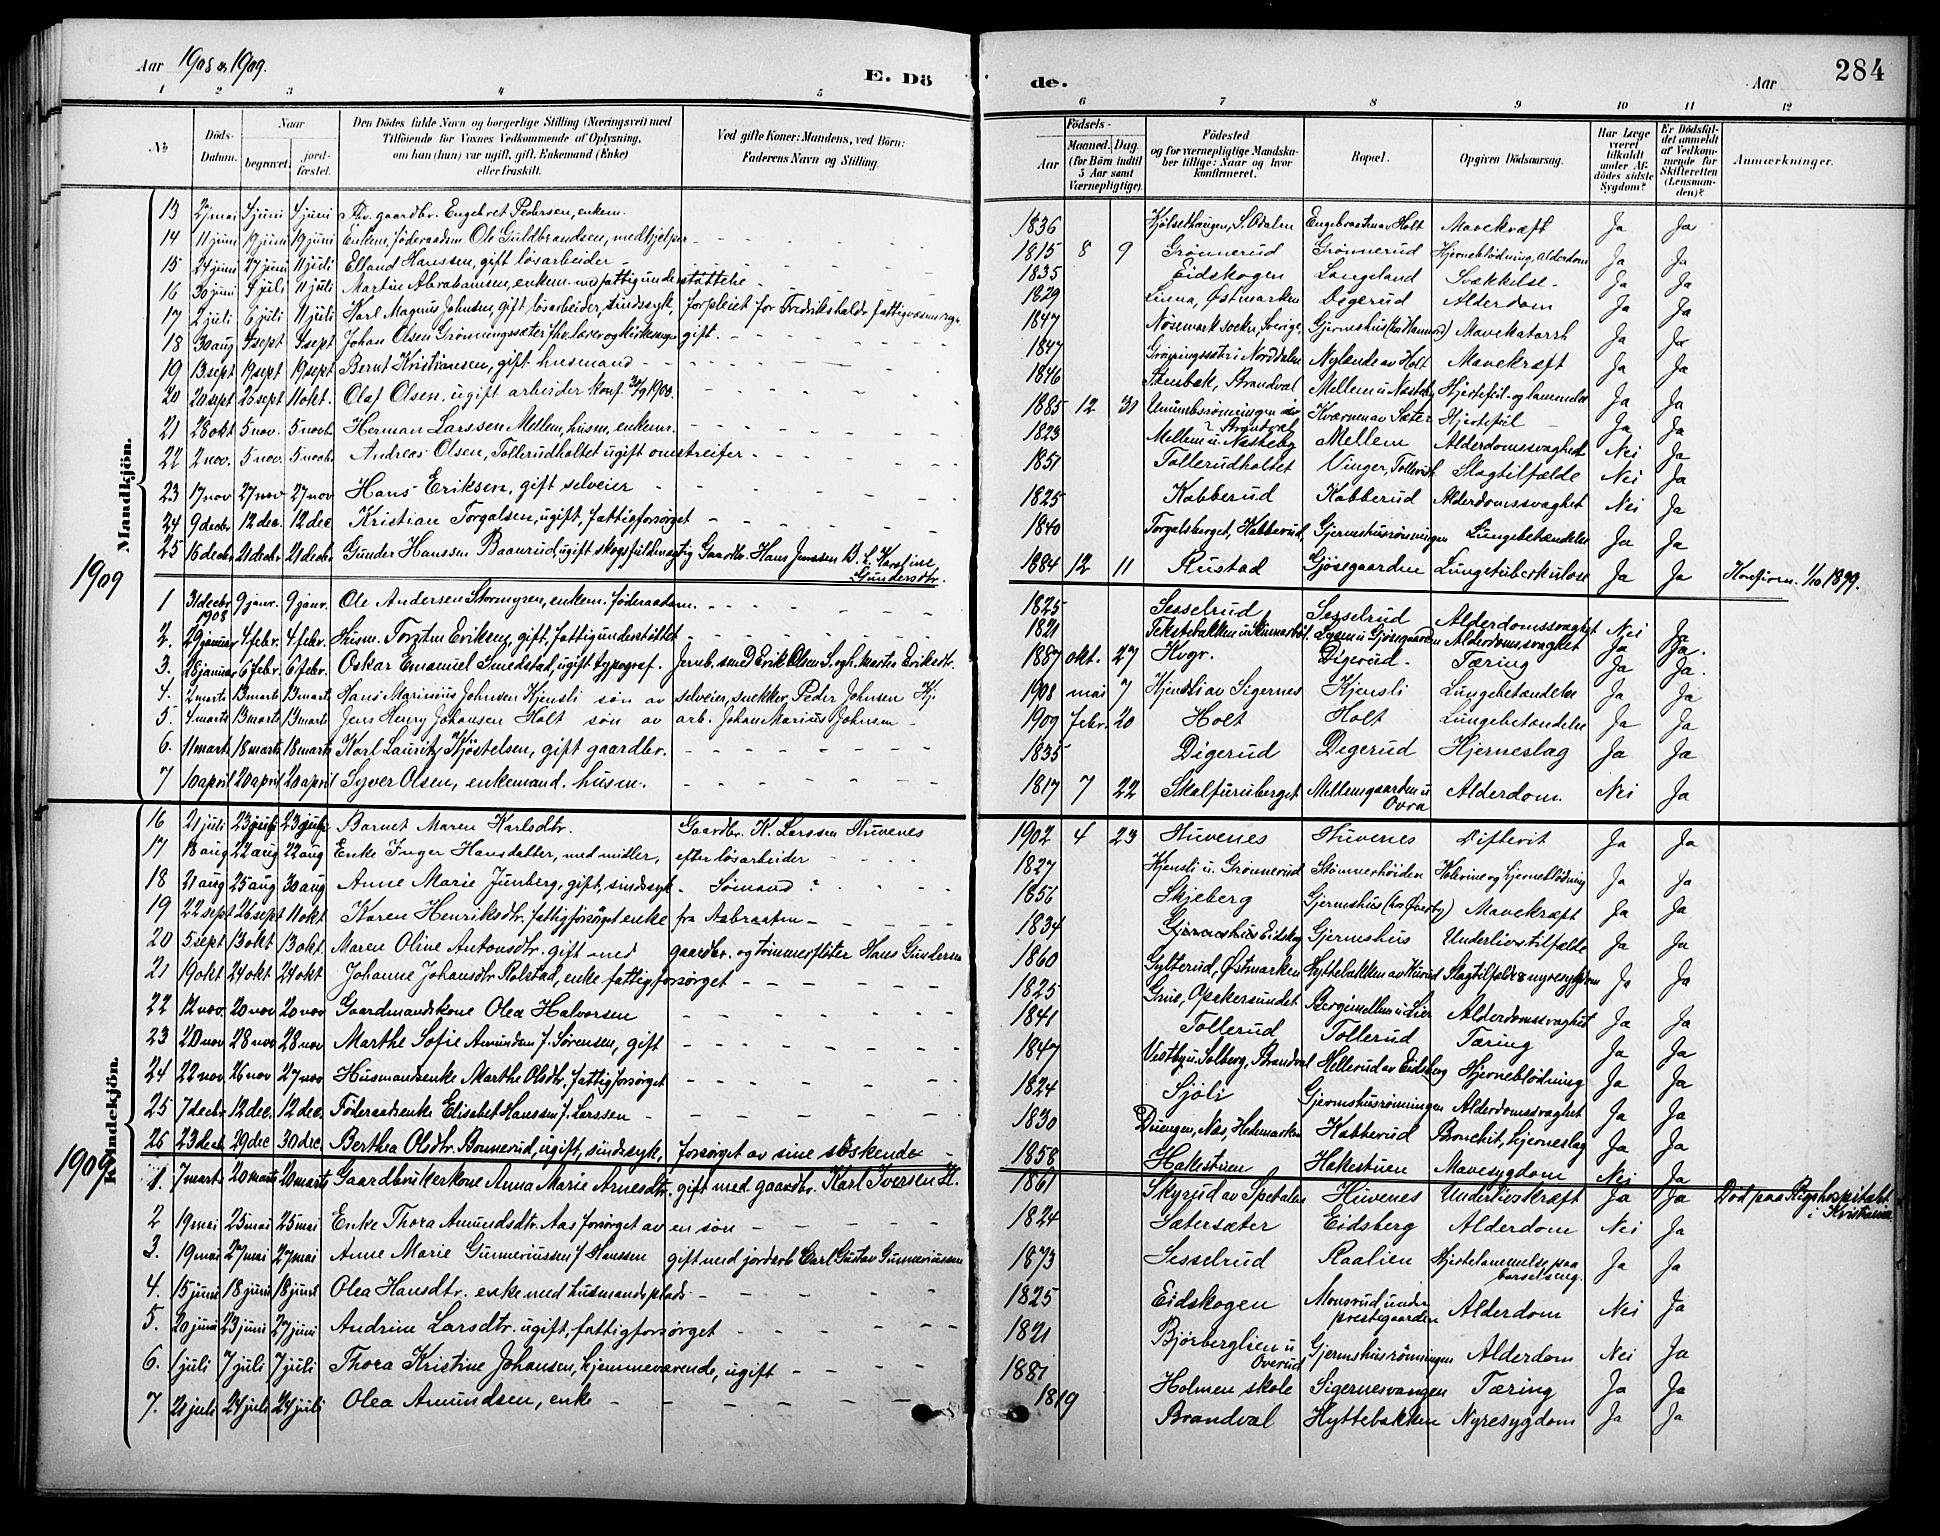 Aar 1908 & 1909.
E. Döde.
Aar
284
1 2 3 4 5 6 7 8 9 10 11 12
No
Döds-Datum.
Naar
begravet.
jordfæstet.
Den Dödes fulde Navn og borgerlige Stilling (Næringsvei) med
Tilföiende for Voxnes Vedkommende af Oplysning,
om han (hun) var ugift, gift, Enkemand (Enke)
eller fraskilt.
Ved gifte Koner: Mandens, ved Börn:
Faderens Navn og Stilling.
Födsels-
Aar
Maaned.
Dag.
(for Börn indtil
5 Aar samt
Værnepligtige).
Födested
og for værnepligtige Mandskaber tillige: Naar og hvor
konfirmeret.
Bopæl.
Opgiven Dödsaarsag.
Har Læge
været
tilkaldt
under Afdödes sidste
Sygdom?
Er Dödsfaldet anmeldt
af Vedkommende for
Skifteretten
(Lensmanden)?
Anmærkninger.
Mandkjön.
13 27 mai 4 juni 4 juni Fhv. gaardbr. Engebret Pedersen, enkem. 1836 Kjölsethaugen, S. Odalen Engebraaten av Holt Mavekræft Ja Ja
14 11 juni 19 juni 19 juni Enkem, föderaadsm Ole Guldbrandsen, med hjelper 1815 8 9 Grönnerud Grönnerud Hjerneblödning, alderdom Ja Ja
15 24 juni 27 juni 11 juli Elland Hanssen, gift lösarbeider 1835 Eidskogen Langeland Svækkelse Ja Ja
16 30 juni 4 juli 11 juli Martin Abrahamsen, enkem. med fattigunderstöttelse 1829 Linna, Östmarken Digerud Alderdom Ja Ja
17 2 juli 6 juli 11 juli Karl Magnus Johnsen, gift lösarbeider, sindssyk, forpleiet for Fredrikshalds fattigvæsens regn. 1847 Nösemark socken, Sverige Gjermshus (hos Hammer) Mavekatarrh Ja Ja
18 30 aug 4 sept 4 sept Johan Olsen Gröningssæter fhv. lærer og kirkesanger gift. 1847 Gröningssætr i Norddalen Nylænde av Holt Mavekræft Ja Ja
19 13 sept 19 sept 19 sept Bernt Kristiansen, gift husmand 1846 Stenbæk, Brandval Mellem u. Næsteby Hjertefeil og lammelse Ja Ja
20 20 sept 26 sept 11 okt. Olaf Olsen, ugift arbeider konf. 30/9 1900. 1885 12 31 Unumbsröningen i Brandval Kværnen av Sæter Hjertefeil Ja Ja
21 28 okt 5 nov. 5 novb. Herman Larssen Mellem, husm, enkem. 1823 Mellem u. Næsteby Mellem Alderdomssvaghet Nei Ja
22 2 nov. 5 nov. 5 novb. Andreas Olsen, Tollerudholtet ugift omstreifer 1851 Tollerudholtet Vinger, Tollerud Slagtilfælde Nei Ja
23 17 nov 27 nov 27 nov Hans Eriksen, gift selveier 1825 Kobberud Kobberud Alderdomssvaghet Nei Ja
24 9 decbr 12 dec. 12 dec. Kristian Torgalsen, ugift, fattigforsørget 1840 Torgalsberget, Kobberud Gjermshusröningen Lungebetændelse Ja Ja
25 16 decbr 21 decbr 21 decbr Gunder Hanssen Baanrud, ugift skogsfuldmægtig Gaardbr. Hans Jenssen B. & Karoline Gundersdtr. 1884 12 11 Rustad Gjösegaarden Lungetuberkulose Ja Ja Konfirm. 1/10 1899.
1909
1 31 decbr 1908 9 janr. 9 janr. Ole Andersen Stormyren, enkem. föderaadsm. 1825 Sesselrud Sesselrud Alderdomssvaghet Nei Ja
2. 29 januar 4 febr. 4 febr. Husm. Torsten Eriksen, gift, fattigunderstöttet 1821 Lysen u. Gjösegaarden Alderdomssvaghet Ja Ja.
3. 28 januar 6 febr. 6 febr. Oskar Emanuel Smedstad, ugift typograf. Jernb. smed Erik Olsen S. og h. Marte Eriksdtr. 1887 okt. 27 Kvgr. Digerud. Tæring Ja Ja.
4. 2 marts 13 marts 13 marts Hans Marinius Johnsen Kjensli sön av selveier, snekker, Peder Johnsen Kj. 1908 mai 7 Kjensli av Sigernes Kjensli Lungebetændelse Ja Ja
5. 4 marts 13 marts 13 marts Jens Henry Johansen Holt sön av arb. Johan Marius Johnsen 1909 febr. 20 Holt Holt Lungebetændelse Ja Ja
6. 11 marts 18 marts 18 marts Karl Lauritz Kjöstelsen, gift gaardbr. 1835 Digerud Digerud Hjerneslag Ja Ja
7 10 april 20 april 20 april Syver Olsen, enkemand, husm. 1817 7 22 Skalfuruberget Mellemgaarden u Ovra Alderdom. Nei Ja
Kvindekjön.
16 21 juli 23 juli 23 juli Barnet Maren Karlsdtr. Gaardbr. K. Larssen Huvenes 1902 4 23 Huvenes Huvenes Difterit Ja Ja
17 18 aug 22 aug 22 aug Enke Inger Hansdatter, med midler, efter lösarbeider 1827 Kjensli u. Grönnerud Stömnerhöiden Kolerine og hjerneblödning Ja Ja
18 21 aug 25 aug 30 aug Anne Marie Junberg, gift, sindssyk. Sömand ? 1856 Skjeberg Gjermshus (hos Överby) Mavekræft Ja Ja
19 22 sept 26 sept 11 okt Karen Henriksdtr. fattigforsørget enke fra Aabraaten 1834 Gjermshus Eidskog Gjermshus Underlivstilfælde Ja Ja
20 5 sept 13 okt 13 okt. Maren Oline Antonsdtr. gift med gaardbr. og tömmerflöter Hans Gundersen 1860 Gylterud, Östmarken Hyttebakken av Kurud Slagtilfælde & nyresygdom Ja Ja
21 19 okt 24 okt 24 okt Johanne Johansdtr. Rolstad, enke fattigforsørget 1825 Grue, Opakersundet Berg i mellem u. Lier Alderdomssvaghet Ja Ja
22 12 nov. 20 nov 20 nov Gaardmandskone Olea Halvorsen 1841 Tollerud Tollerud Tæring Ja Ja
23 20 nov 28 nov 28 nov Marthe Sofie Amundsen f. Sörensen, gift 1847 Vestby u. Solberg, Brandval Hellerud av Eidsberg Hjerneblödning Ja Ja
24 22 nov 26 nov 27 nov Husmandsenke Marthe Olsdtr, fattigforsørget 1824 Sjöli Gjermshusröningen Alderdomssvaghet Ja Ja
25 7 decbr 12 dec. 12 dec. Föderaadsenke Elisabet Hanssen f. Larssen 1830 Duengen, Næs, Hedemarken Kobberud Bronchit, hjerneslag Ja Ja
26 23 decb 29 dec 30 dec Berthea Olsdtr. Bonnerud, ugift, sindssyk, forsørget av sine söskende 1858 Hakestuen Hakestuen Mavesygdom Nei Ja
1909
1. 7 marts 20 marts 20 marts Gaardbrukerkone Anna Marie Arnesdtr. gift med gaardbr. Karl Iversen H. 1861 Skyrud av Spetalen Huvenes Underlivskræft Ja Ja Död paa Rigshospitalet i Kristiania.
2 19 mai 25 mai 25 mai Enke Thora Amundsdtr. Aas forsørget av en sön 1824 Sætersæter Eidsberg Alderdom Nei Ja
3. 19 mai 27 mai 27 mai Anne Marie Gunneriussen f Hanssen gift med jordarb Carl Gustav Gunneriussen 1873 Sesselrud Raalien Hjertelammelse paa barselseng. Ja Ja
4. 15 juni 18 juni 18 juni Olea Hansdtr. enke med husmandsplads 1825 Eidskogen Monsrud under prestegaarden Alderdom Nei Ja
5. 20 juni 23 juni 27 juni Andrine Larsdtr. ugift, fattigforsørget 1821 Björberglien u Overud Gjermshusröningen Alderdom Nei Ja
6. 1 juli 7 juli 7 juli Thora Kristine Johansen, hjemmeværende, ugift 1881 Holmen skole Sigernesvangen Tæring Ja Ja
7. 21 juli 24 juli 24 juli Olea Amundsen, enke 1819 Brandval Hyttebakken Nyresygdom Ja Ja